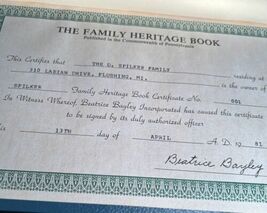 THE FAMILY HERITAGE BOOK
Published in the Commonwealth of Pennsylvania
This Certifies that THE D. SPILKER FAMILY
310 LABIAN DRIVE, FLUSHING, MI. residing at
is the owner of
SPILKER Family Heritage Book Certificate No. 001
In Witness Whereof, Beatrice Bayley Incorporated has caused this certificate
to be signed by its duly authorized officer
this 13TH day of APRIL A. D. 19 81
Beatrice Bayley